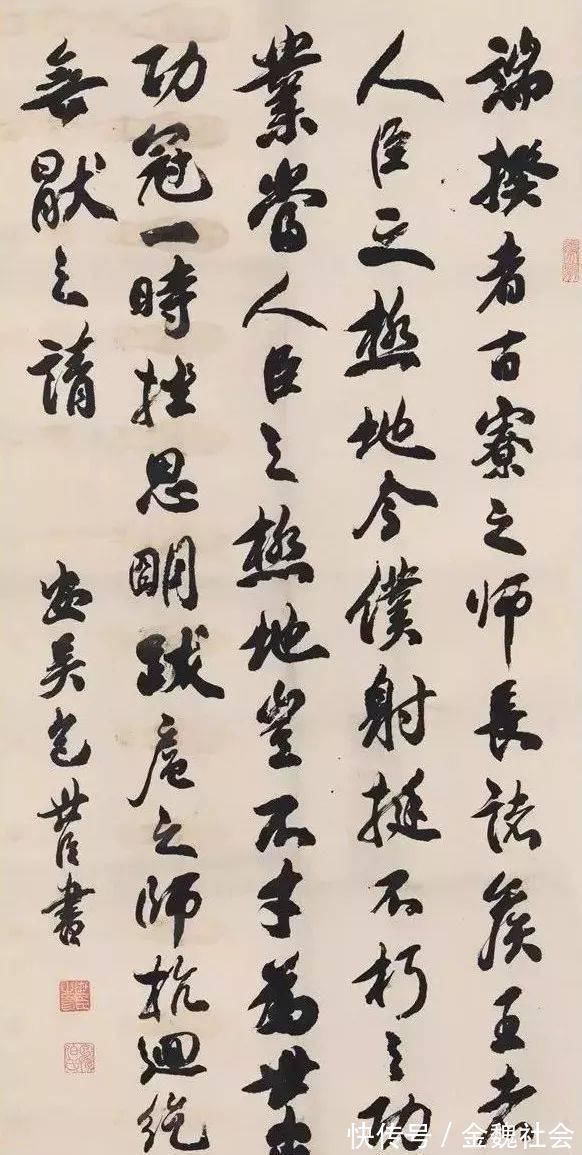 端揆者百寮之师長諸侯王者
人臣之極地今僕射挺不朽之功
業當人臣之極地豈不才為世出
功冠一時挫思明跋扈之師抗迴紇
無猒之請
安吳包世臣書
快传号 / 金魏社会